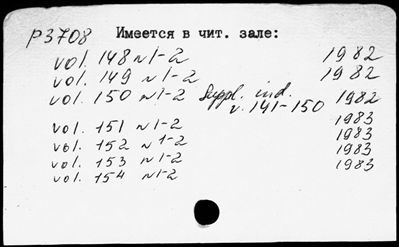 P3708 Имеется в чит. зале:
vol. 148 N1-2 1982
vol. 149 N1-2 1982
vol. 150 N1-2 Suppl. ind. 1982
v. 141-150
vol. 151 N1-2 1983
vol. 152 N1-2 1983
vol. 153 N1-2 1983
vol. 154 N1-2 1983